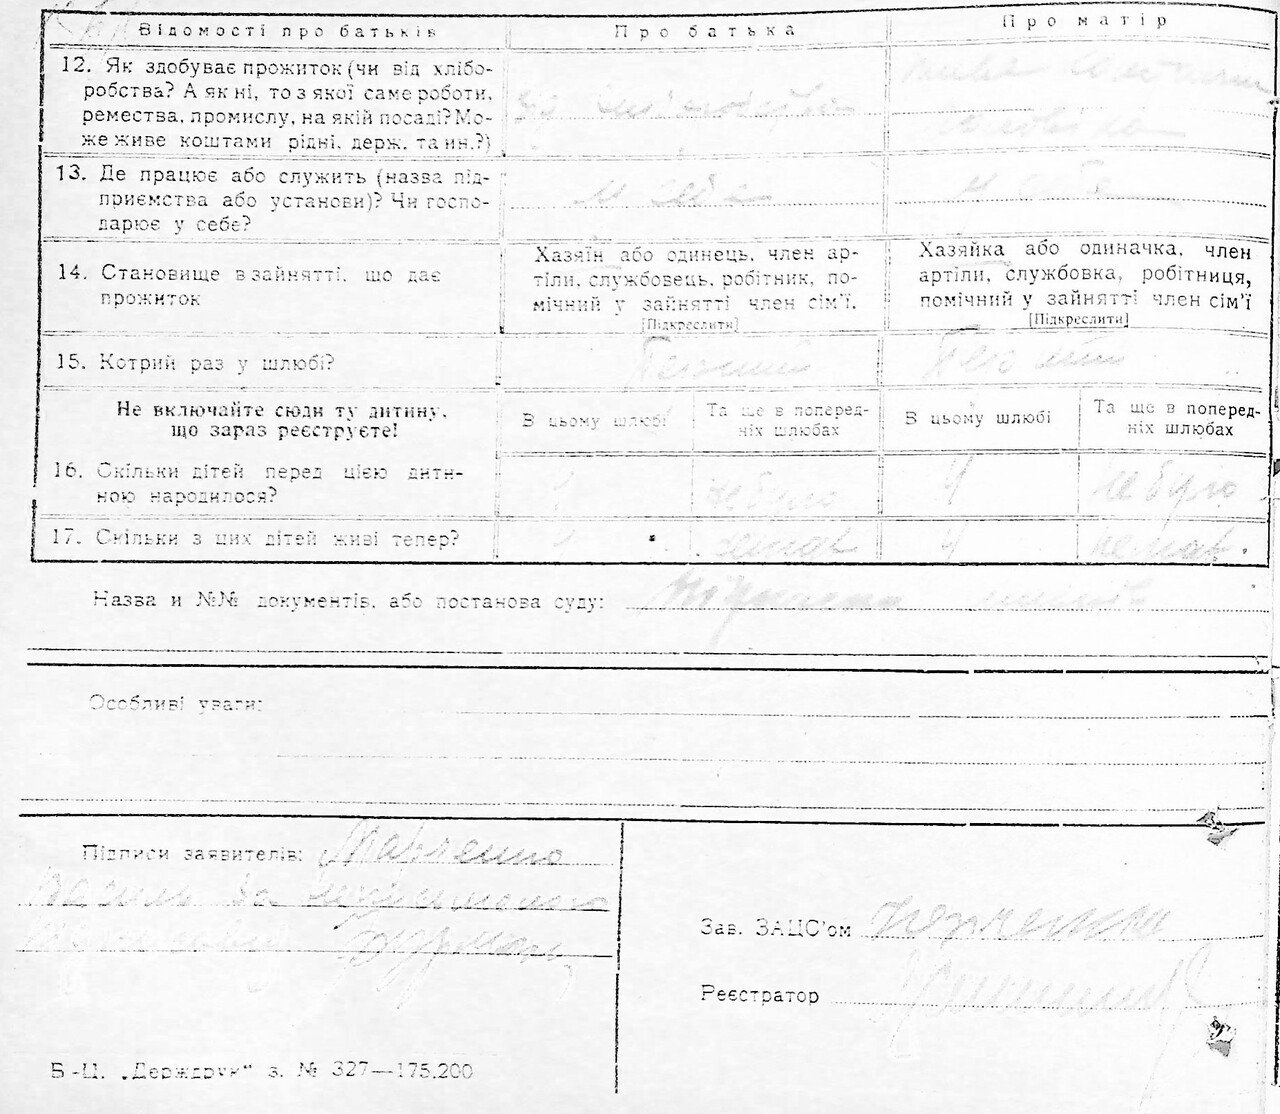 Відомості про батьків
Про батька
Про матір
12. Як здобуває прожиток (чи від хлібо-
робства? А як ні, то з якої саме роботи,
ремества, промислу, на якій посаді? Мо-
же живе коштами рідні, держ. та ин.?)
13. Де працює або служить (назва під-
приємства або установи)? Чи госпо-
дарює у себе?
14. Становище в зайнятті, що дає
прожиток
Хазяїн або одинець, член ар-
тіли, службовець, робітник, по-
мічний у зайнятті член сім'ї.
[Підкреслити]
Хазяйка або одиначка, член
артіли, службовка, робітниця,
помічний у зайнятті член сім'ї
[Підкреслити]
15. Котрий раз у шлюбі?
Первий
Не включайте сюди ту дитину,
що зараз реєструєте!
В цьому шлюбі
Та ще в поперед-
ніх шлюбах
В цьому шлюбі
Та ще в поперед-
ніх шлюбах
16. Скільки дітей перед цією дити-
ною народилося?
не було
4
не було
17. Скільки з цих дітей живі тепер?
немає
4
немає.
Назва и №№ документів, або постанова суду:
Особливі уваги:
Підписи заявителів: Марченко
Василь за
Зав. ЗАЦС'ом
Реєстратор
Б-Ц. „Держдрук" з. № 327—175.200